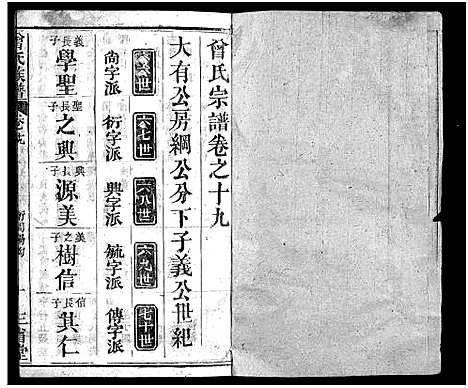 曾氏宗譜卷之十九
大有公房綱公分下子義公世紀
六六世 六七世 六八世 六九世 七十世
尚字派 衍字派 興字派 毓字派 傳字派
義長子 學聖 聖長子 之興 興長子 源美 美之子 樹信 信長子 其仁
曾氏族譜